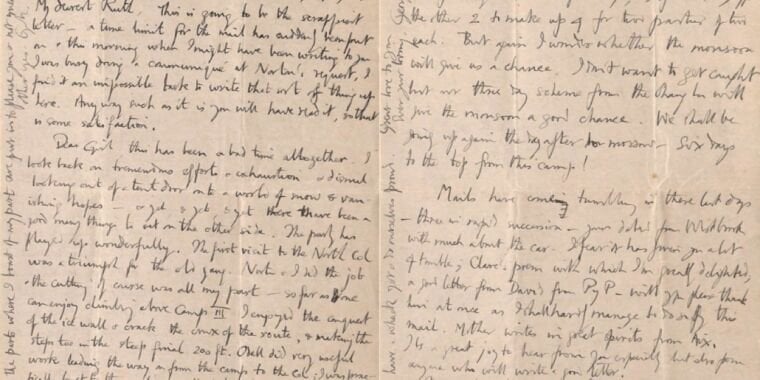 My dearest Ruth, This is going to be the scrappiest
letter – a time limit for the mail has suddenly been put
on & this morning when I might have been writing to you
I was busy doing a communiqué at Norton's request, I
find it an impossible task to write that sort of thing up
here. Any way such as it is you will have read it, so that
is some satisfaction.
Dear Girl this has been a bad time altogether. I
look back on tremendous efforts & exhaustion & dismal
looking out of a tent door onto a world of snow & van-
ishing hopes – & yet, & yet, & yet there have been a
good many things to set on the other side. The party has
played up wonderfully. The first visit to the North Col
was a triumph for the old gang. Norton & I did the job
& the cutting of course was all my part – so far as one
can enjoy climbing above Camp III I enjoyed the conquest
of the ice wall & crack, the crux of the route, & making the
steps too in the steep final 200 ft. Odell did very useful
work leading the way on from the camp to the Col; I was prac-
the parts where I boast of my part are put in to please you & not meant
the other 2 to make up 4 for two parties of two
each. But again I wonder whether the monsoon
will give us a chance. I don't want to get caught
but our three day scheme from the Chang La will
give the monsoon a good chance. We shall be
going up again the day after to morrow – Six days
to the top from this camp!
Mails have coming tumbling in these last days
– three in rapid succession – yours dated from Westbrook
with much about the car. I fear it has given you a lot
of trouble; Clare's poem with which I'm greatly delighted,
a good letter from David from PyP – will you please thank
him at once as I shall hardly manage to do so by this
mail. Mother writes in great spirits from Aix.
It's a great joy to hear from you especially but also from
anyone who will write a good letter.
Great love to you